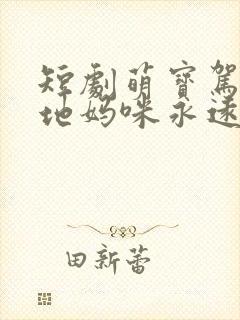 短劇萌寶駕
地媽咪永遠
田新蕾